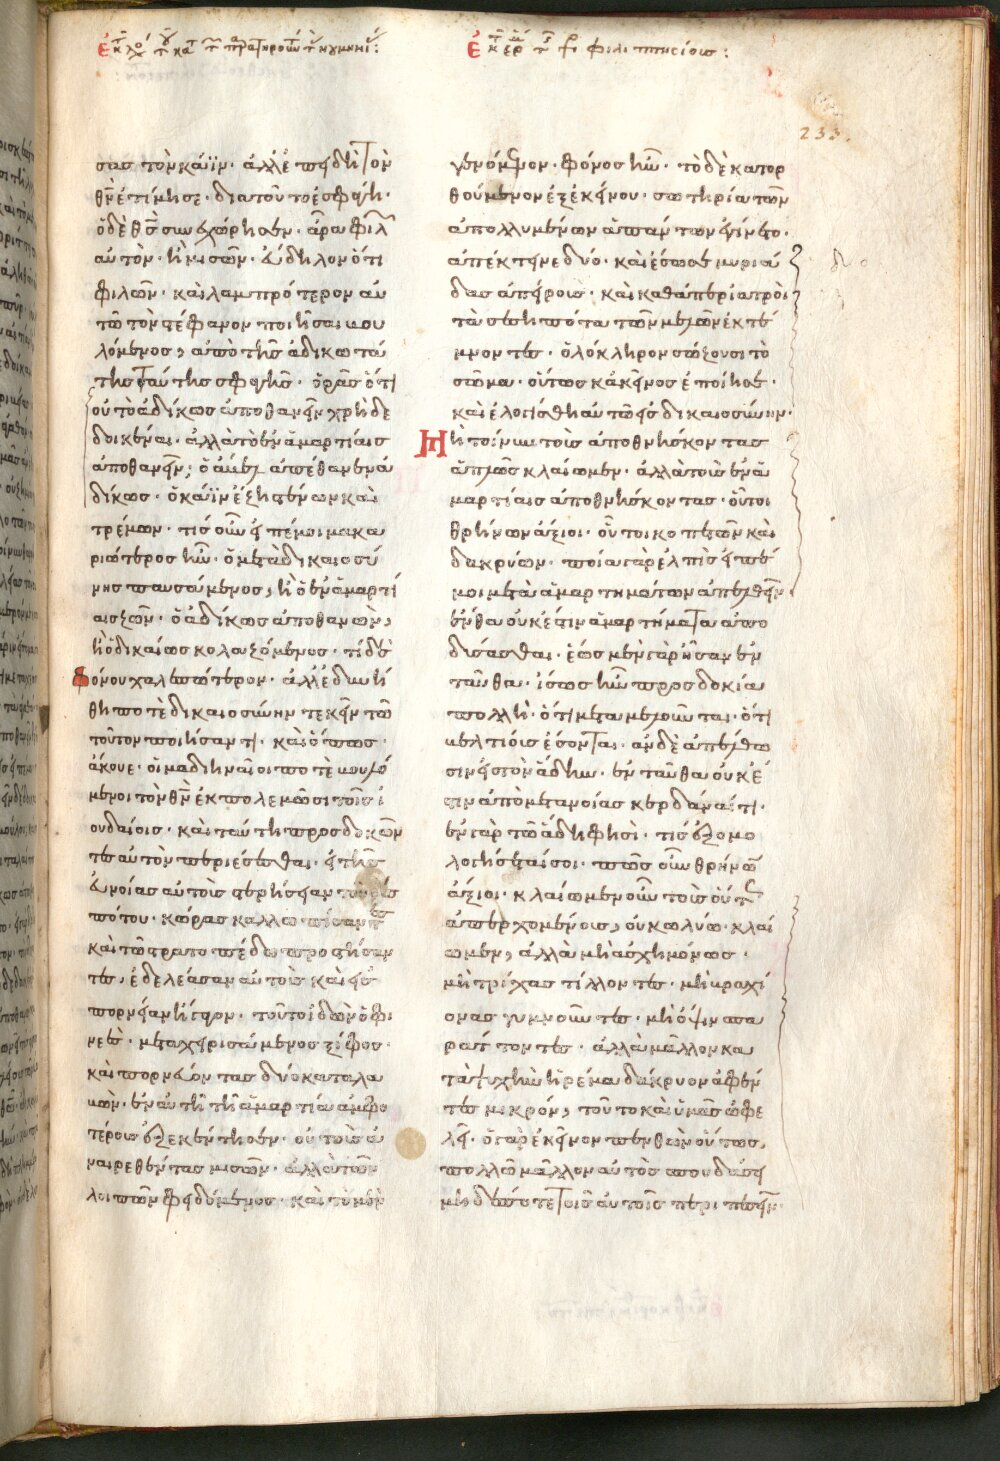 ἐκ τοῦ λόγου τοῦ κατὰ τῶν παρατηρούντων τὰς νουμηνίας:
ἐκ τῆς ἑρμ τῆς πρὸς φιλιππησίους:
233.
σας τὸν κάϊν· ἀλλ' ἐπειδὴ τὸν
θν̄ ἐτίμησε· διὰ τοῦτο ἐσφάγη·
ὁ δὲ θς̄ συνεχώρησεν· ἆρα φιλῶν
αὐτὸν· ἢ μισῶν· εὔδηλον ὅτι
φιλῶν· καὶ λαμπρότερον αὐ
τῶ τὸν στέφανον ποιῆσαι βου
λόμενος, ἀπὸ τῆς ἀδικωτά
της ταύτης σφαγῆς· ὁρᾶς ὅτι
οὐ τὸ ἀδίκως ἀποθανεῖν χρὴ δε
δοικέναι· ἀλλὰ τὸ ἐν ἁμαρτίαις
ἀποθανεῖν; ὁ ἄβελ ἀπέθανεν ἀ
δίκως· ὁ κάϊν ἔζη στένων καὶ
τρέμων· τίς οὖν εἰπέ μοι μακα
ριώτερος ἦν· ὁ μετὰ δικαιοσύ
νης παυσάμενος, ἢ ὁ ἐν ἁμαρτί
αις ζῶν· ὁ ἀδίκως ἀποθανὼν,
ἢ ὁ δικαίως κολαζόμενος· τί δὲ
φόνου χαλεπώτερον· ἀλλ' ἐδυνή
θη ποτὲ δικαιοσύνην τεκεῖν τῶ
τοῦτον ποιήσαντι· καὶ ὅπως·
ἄκουε· οἱ μαδιηναῖοι ποτὲ βουλό
μενοι τὸν θν̄ ἐκπολεμῶσι τοῖς ἰ
ουδαίοις· καὶ ταύτη προσδοκῶν
τες αὐτὸν περιέσεσθαι· εἰ τῆς
εὐνοίας αὐτοὺς στερήσειαν τοῦ δεσ
πότου· κόρας καλλωπίσαντες
καὶ τῶ στρατοπέδω προστήσαν
τες, ἐδελέασαν αὐτοὺς καὶ εἰς
πορνείαν ἤγαγον· τοῦτο ἰδὼν ὁ φι
νεὲς· μεταχειρισάμενος ξίφος·
καὶ πορνεύοντας δύο καταλα
βών· ἐν αὐτῆ τῆ ἁμαρτία ἀμφο
τέρους ἐξεκέντησεν· οὐ τοὺς ἀ
ναιρεθέντας μισῶν· ἀλλὰ τῶν
λοιπῶν φειδόμενος· καὶ τὸ μὲν
γενόμενον· φόνος ἦν· τὸ δὲ κατορ
θούμενον ἐξ ἐκείνου· σωτηρία τῶν
ἀπολλυμένων ἁπάντων ἐγίνετο·
ἀπέκτεινε δύο· καὶ ἔσωσε μυριά
δας ἀπείρους· καὶ καθάπερ ἰατροὶ
τὰ σεσηπότα τῶν μελῶν ἐκτέ
μνοντες· ὁλόκληρον σώζουσι τὸ
σῶμα· οὕτως κἀκεῖνος ἐποίησε·
καὶ ἐλογίσθη αὐτῶ εἰς δικαιοσύνην·
μὴ τοίνυν τοῖς ἀποθνήσκοντας
ἁπλῶς κλαίωμεν· ἀλλὰ τοὺς ἐν ἁ
μαρτίαις ἀποθνήσκοντας· οὗτοι
θρήνων ἄξιοι· οὗτοι κοπετῶν καὶ
δακρύων· ποία γὰρ ἐλπὶς εἰπέ
μοι μετὰ ἁμαρτημάτων ἀπελθεῖν
ἔνθα οὐκ ἔστιν ἁμαρτήματα ἀπο
δύσασθαι· ἕως μὲν γὰρ ἦσαν ἐν
ταῦθα· ἴσως ἦν προσδοκία
πολλὴ· ὅτι μεταβαλοῦνται· ὅτι
βελτίους ἔσονται· ἂν δὲ ἀπέλθω
σιν εἰς τὸν ἅδην· ἐνταῦθα οὐκ ἔ
στιν ἀπὸ μετανοίας κερδᾶναί τι·
ἐν γὰρ τῶ ἅδη φησὶ· τίς ἐξομο
λογήσεταί σοι· πῶς οὖν θρήνων
ἄξιοι· κλαίωμεν οὖν τοὺς οὕτως
ἀπερχομένους, οὐ κωλύω· κλαί
ωμεν, ἀλλὰ μὴ ἀσχημόνως·
μὴ τρίχας τίλλοντες· μὴ βραχί
ονας γυμνοῦντες· μὴ ὄψιν σπα
ράττοντες· ἀλλὰ μᾶλλον κα
τὰ ψυχὴν ἠρέμα δάκρυον ἀφέν
τες μικρόν, τοῦτο καὶ ἡμᾶς ὠφε
λεῖ· ὁ γὰρ ἐκεῖνον πενθῶν οὕτως,
πολλῶ μᾶλλον αὐτὸς σπουδάσει
μηδέποτε τοῖς αὐτοῖς περιπεσεῖν·